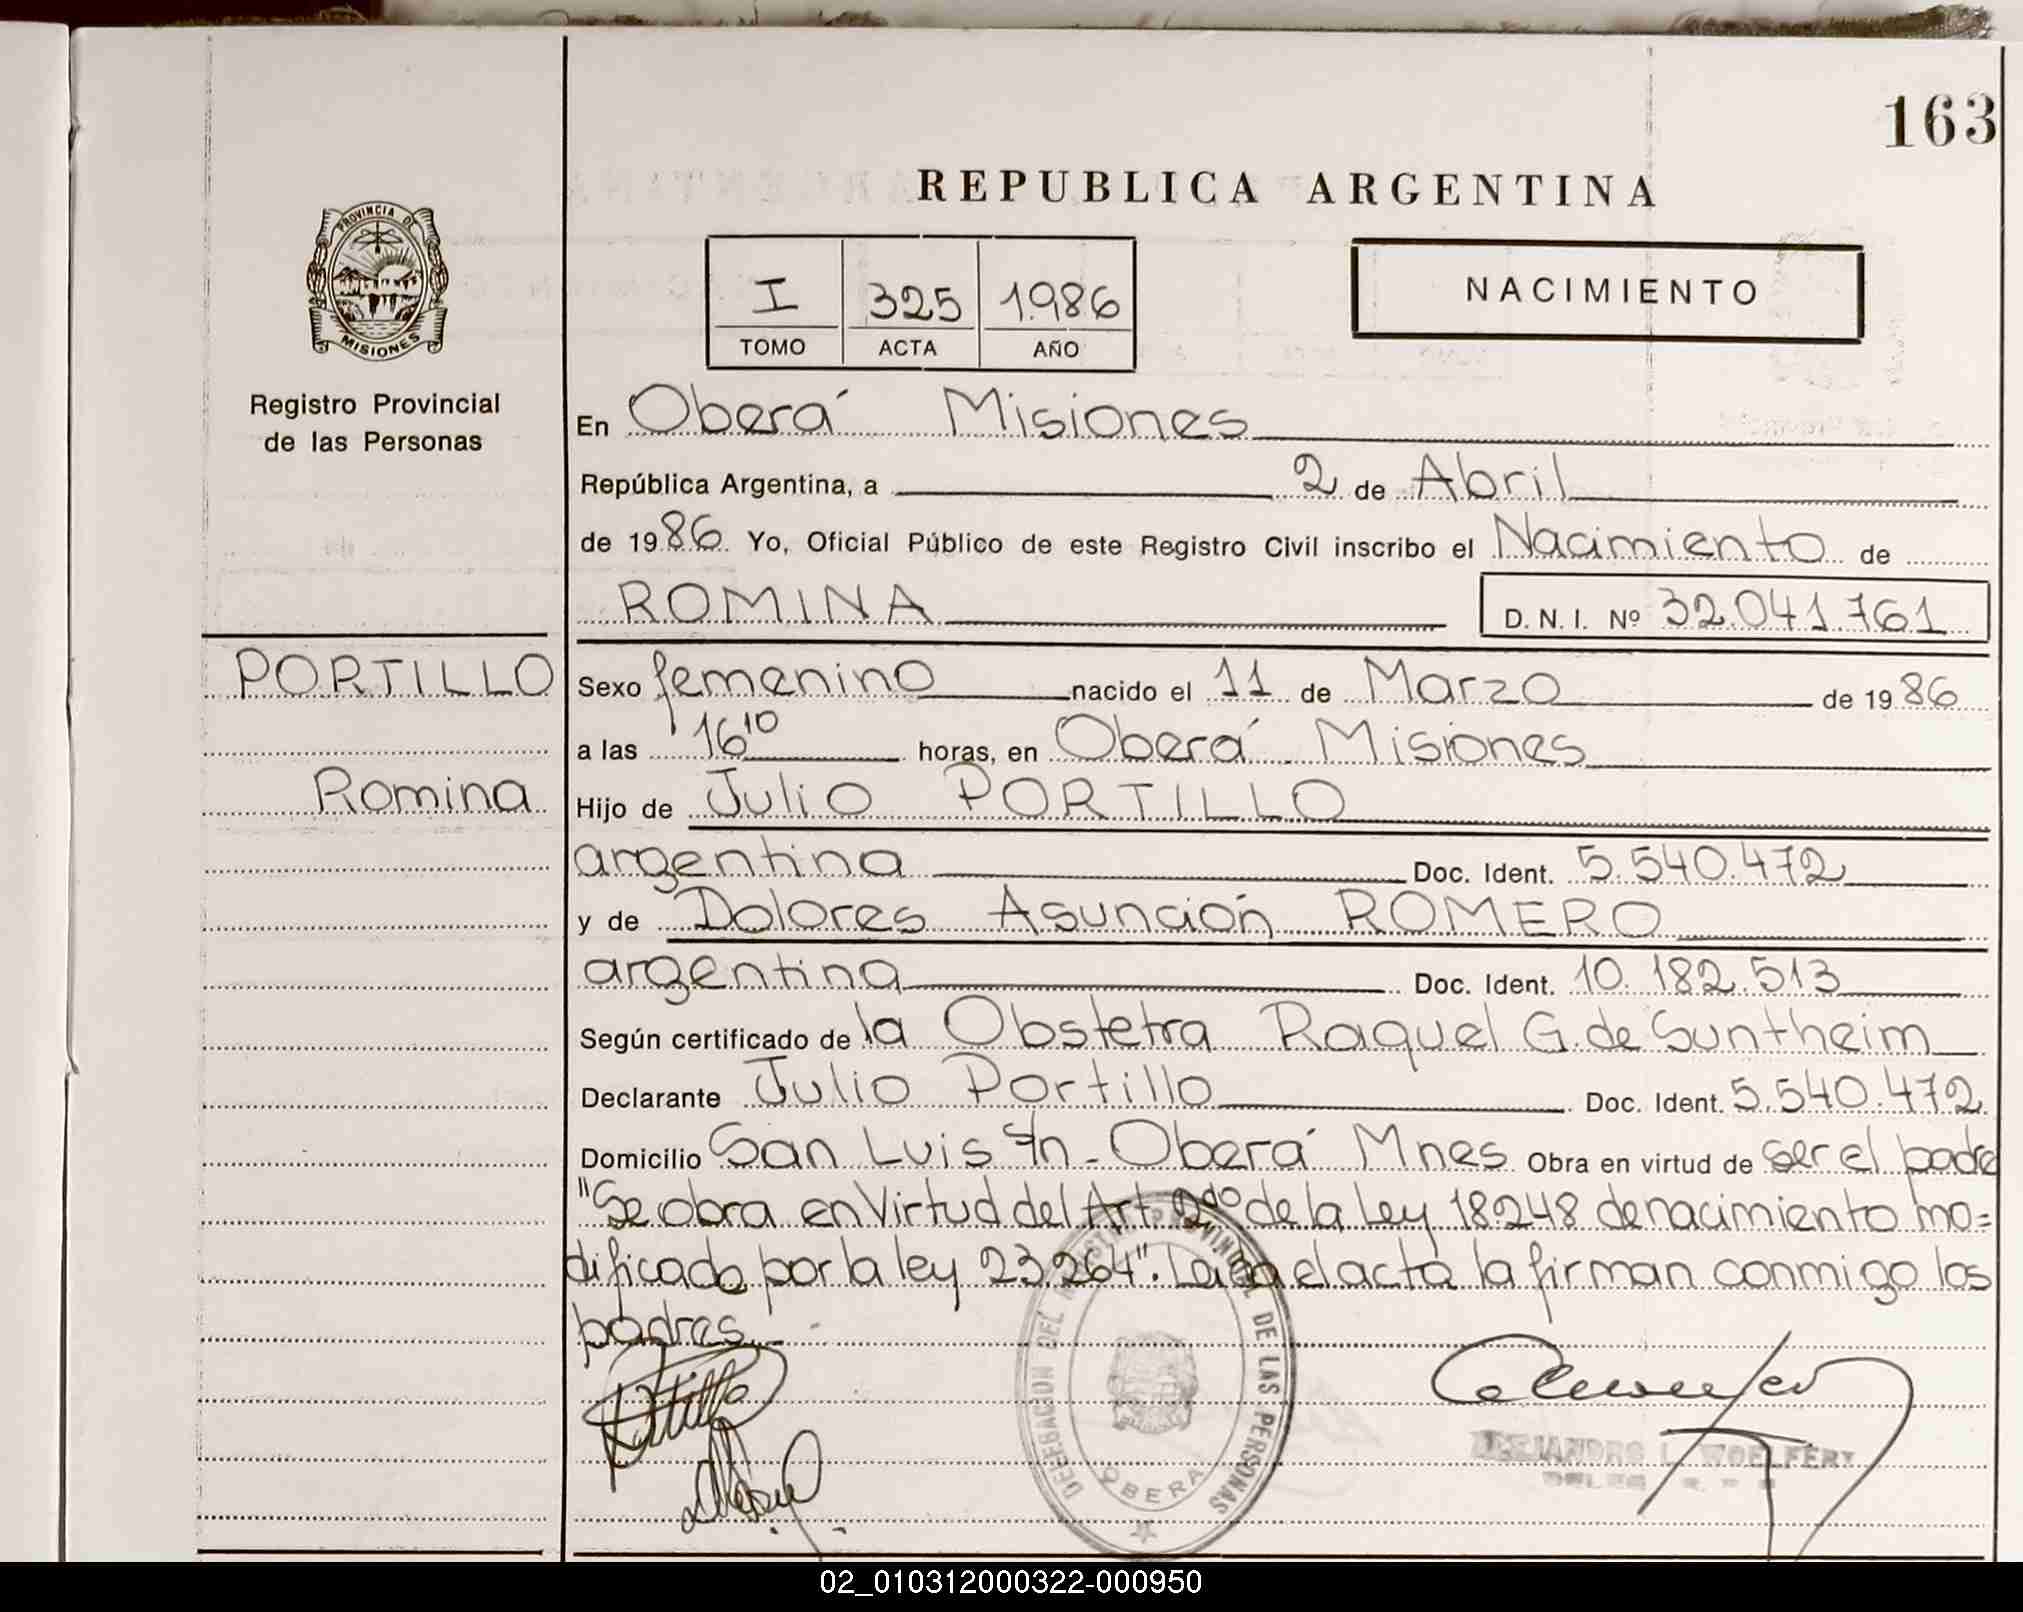 163
REPUBLICA ARGENTINA
PROVINCIA DE
MISIONES
I 325 1.986
TOMO ACTA AÑO
NACIMIENTO
Registro Provincial
de las Personas
En Oberá Misiones
República Argentina, a 2 de Abril
de 1986 Yo, Oficial Público de este Registro Civil inscribo el Nacimiento de
ROMINA
D. N. I. Nº 32.041.761
PORTILLO
Romina
Sexo femenino nacido el 11 de Marzo de 1986
a las 16 10 horas, en Oberá Misiones
Hijo de Julio PORTILLO
argentina Doc. Ident. 5.540.472
y de Dolores Asunción ROMERO
argentina Doc. Ident. 10.182.513
Según certificado de la Obstetra Raquel G. de Suntheim
Declarante Julio Portillo Doc. Ident. 5.540.472
Domicilio San Luis s/n - Oberá Mnes Obra en virtud de ser el padre
"Se obra en Virtud del Art. 2do de la Ley 18.248 de nacimiento mo=
dificado por la ley 23.264". Leida el acta la firman conmigo los
padres.
DELEGACION DEL REGISTRO PROVINCIAL DE LAS PERSONAS
OBERA
ALEJANDRO L. WOELFERT
02_010312000322-000950